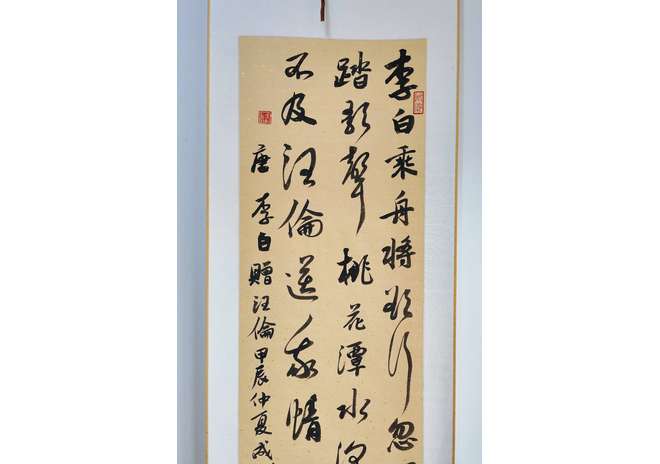 李白乘舟将欲行忽
踏歌聲桃花潭水深
不及汪倫送我情
唐李白贈汪倫甲辰仲夏成